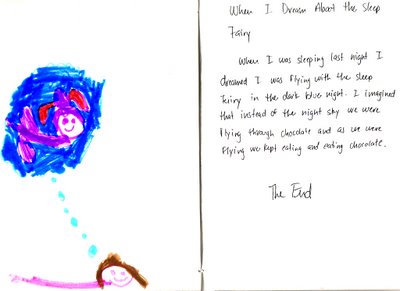 When I Dream About the Sleep
Fairy
When I was sleeping last night I
dreamed I was flying with the sleep
fairy in the dark blue night. I imagined
that instead of the night sky we were
flying through chocolate and as we were
flying we kept eating and eating chocolate.
The End